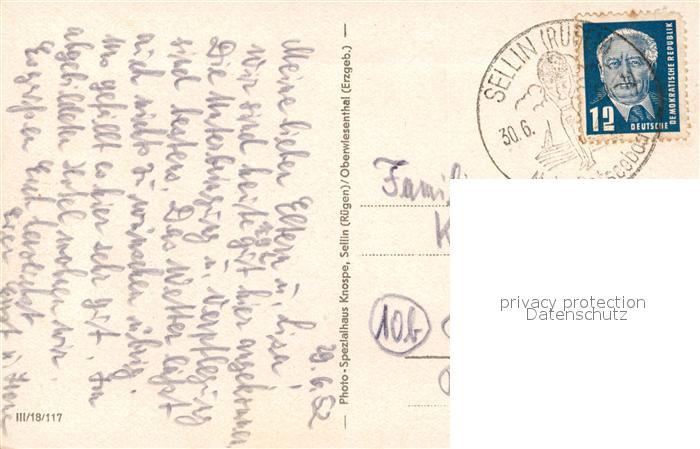 29.6.52
Meine lieben Eltern u. Lisa!
Wir sind heute gut hier angekommen.
Die Unterbringung u. Verpflegung
sind bestens. Das Wetter läßt
auch nichts zu wünschen übrig.
Uns gefällt es hier sehr gut. Im
abgebildeten Hotel wohnen wir.
Es grüßen Euch
Photo-Spezialhaus Knospe, Sellin (Rügen)/Oberwiesenthal (Erzgeb.)
III/18/117
SELLIN (RÜ
30.6.
Ostseebad
12
DEUTSCHE
DEMOKRATISCHE REPUBLIK
Famili
K
10b
privacy protection
Datenschutz